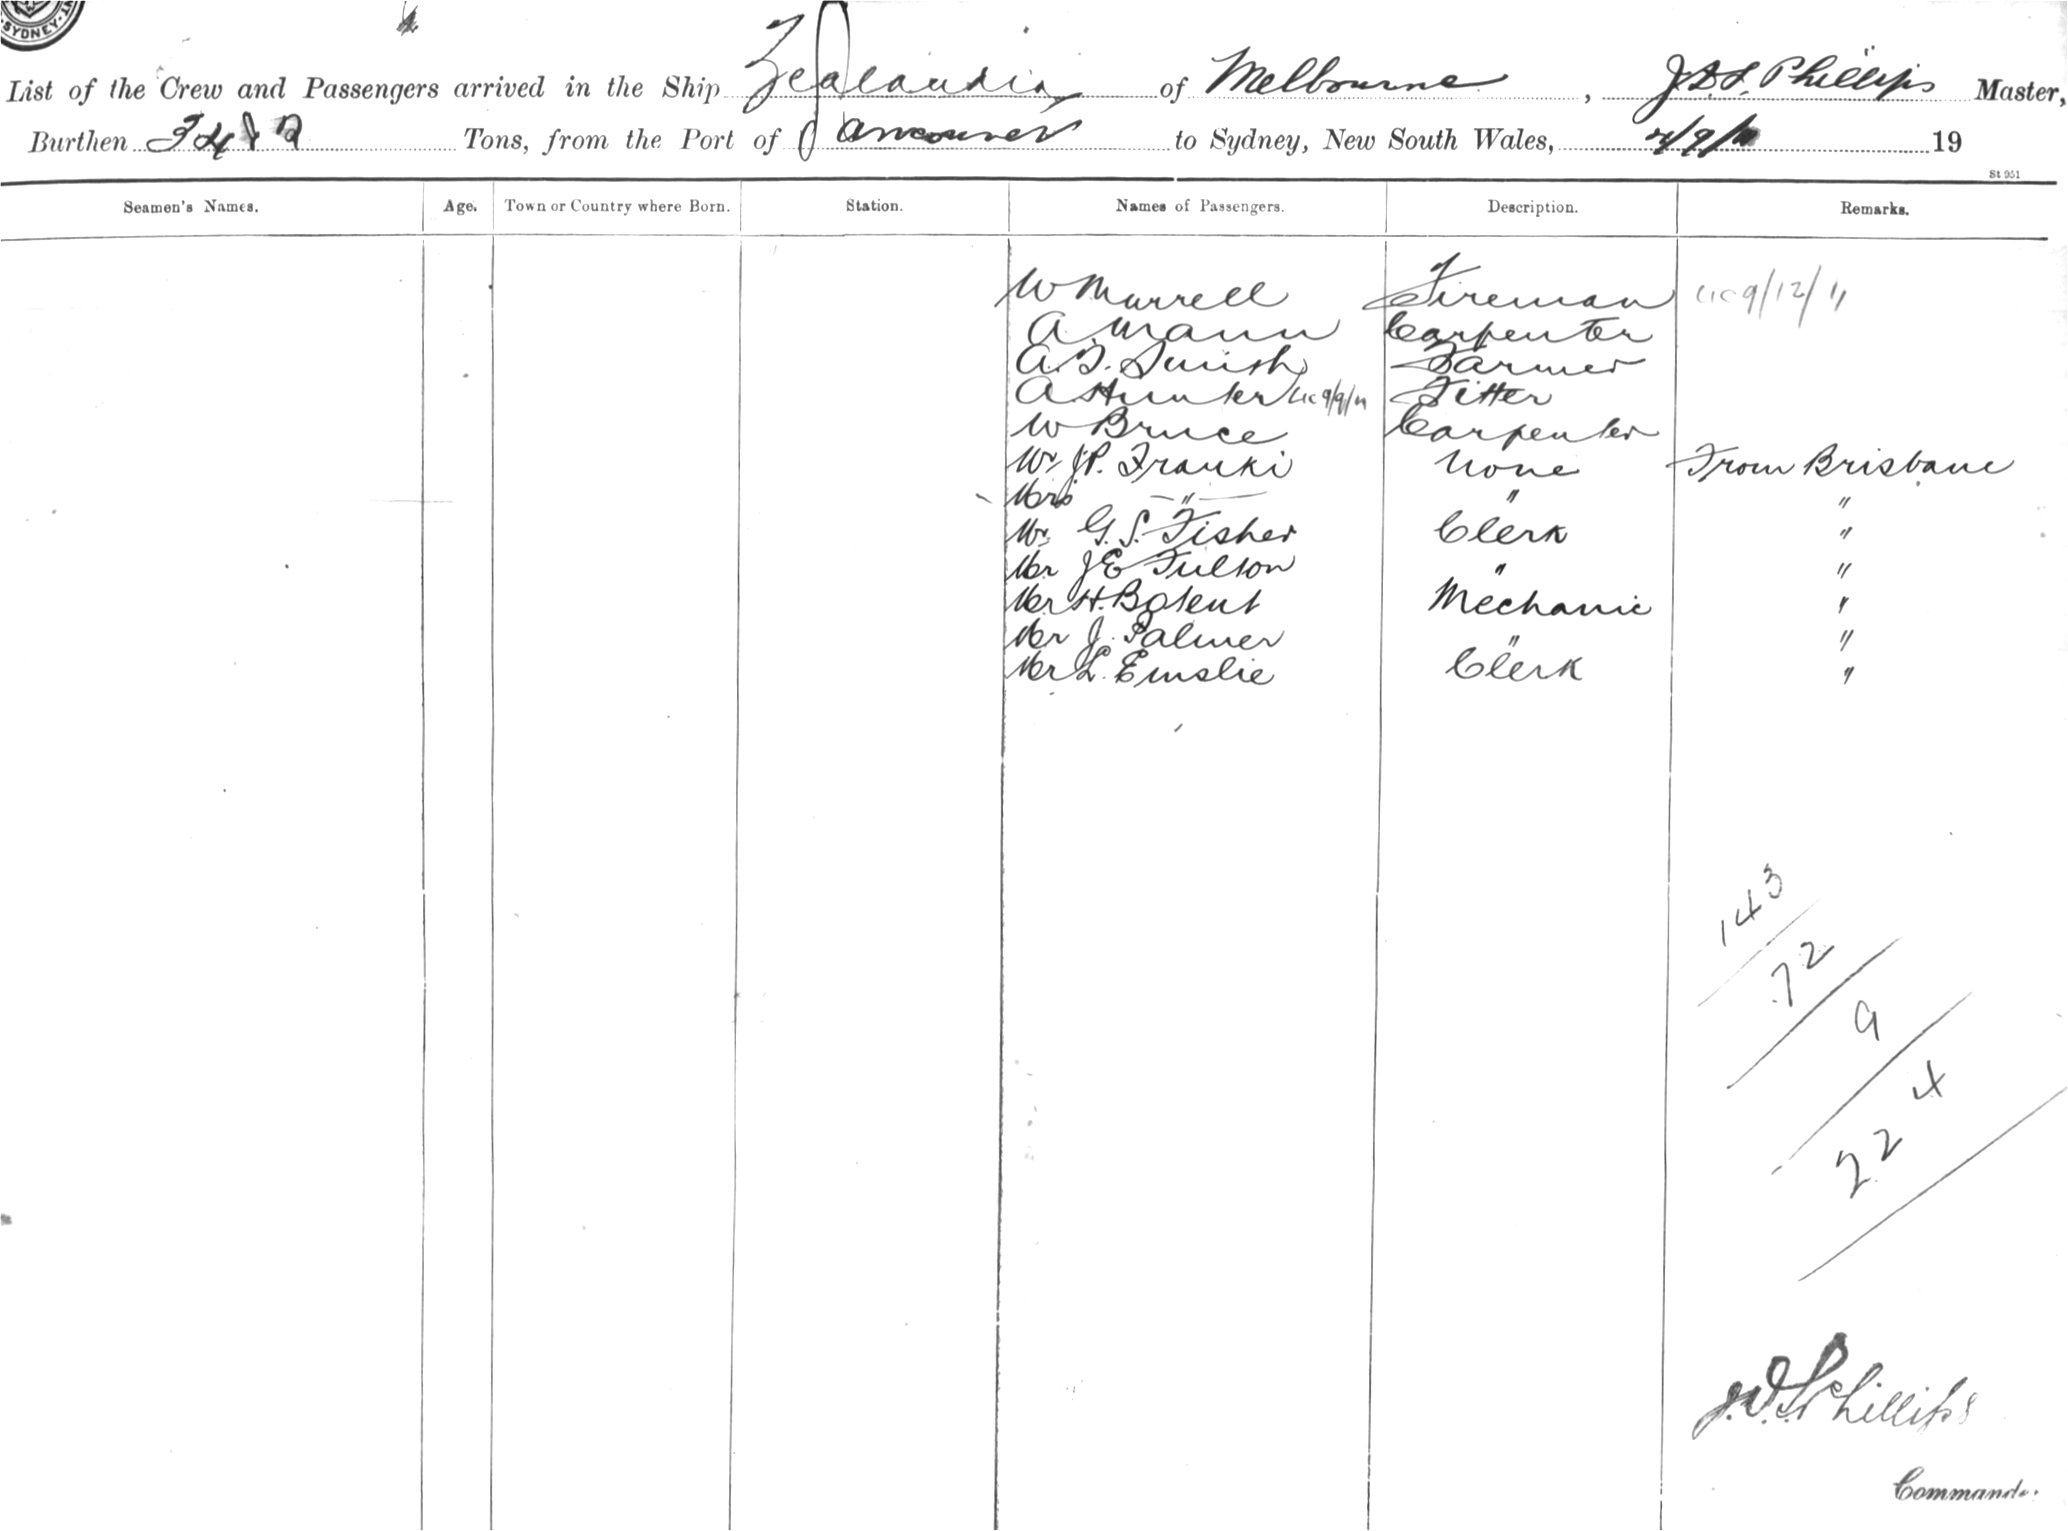 SYDNEY
List of the Crew and Passengers arrived in the Ship Zealandia of Melbourne, J.D.S. Phillips Master,
Burthen Tons, from the Port of Vancouver to Sydney, New South Wales, 19
St 951
Seamen's Names. Age. Town or Country where Born. Station. Names of Passengers. Description. Remarks.
W Murrell Fireman 9/12/11
A. Mann Carpenter
A. Farmer
A Hunter 9/9/11 Fitter
W Bruce Carpenter
Mr J.P. Franki None From Brisbane
Mrs — " — " "
Mr G. S. Fisher Clerk "
Mr J E Fulton " "
Mr H. Mechanic "
Mr J. Palmer " "
Mr L. Emslie Clerk "
143
72
9
224
J.D.S. Phillips
Commande